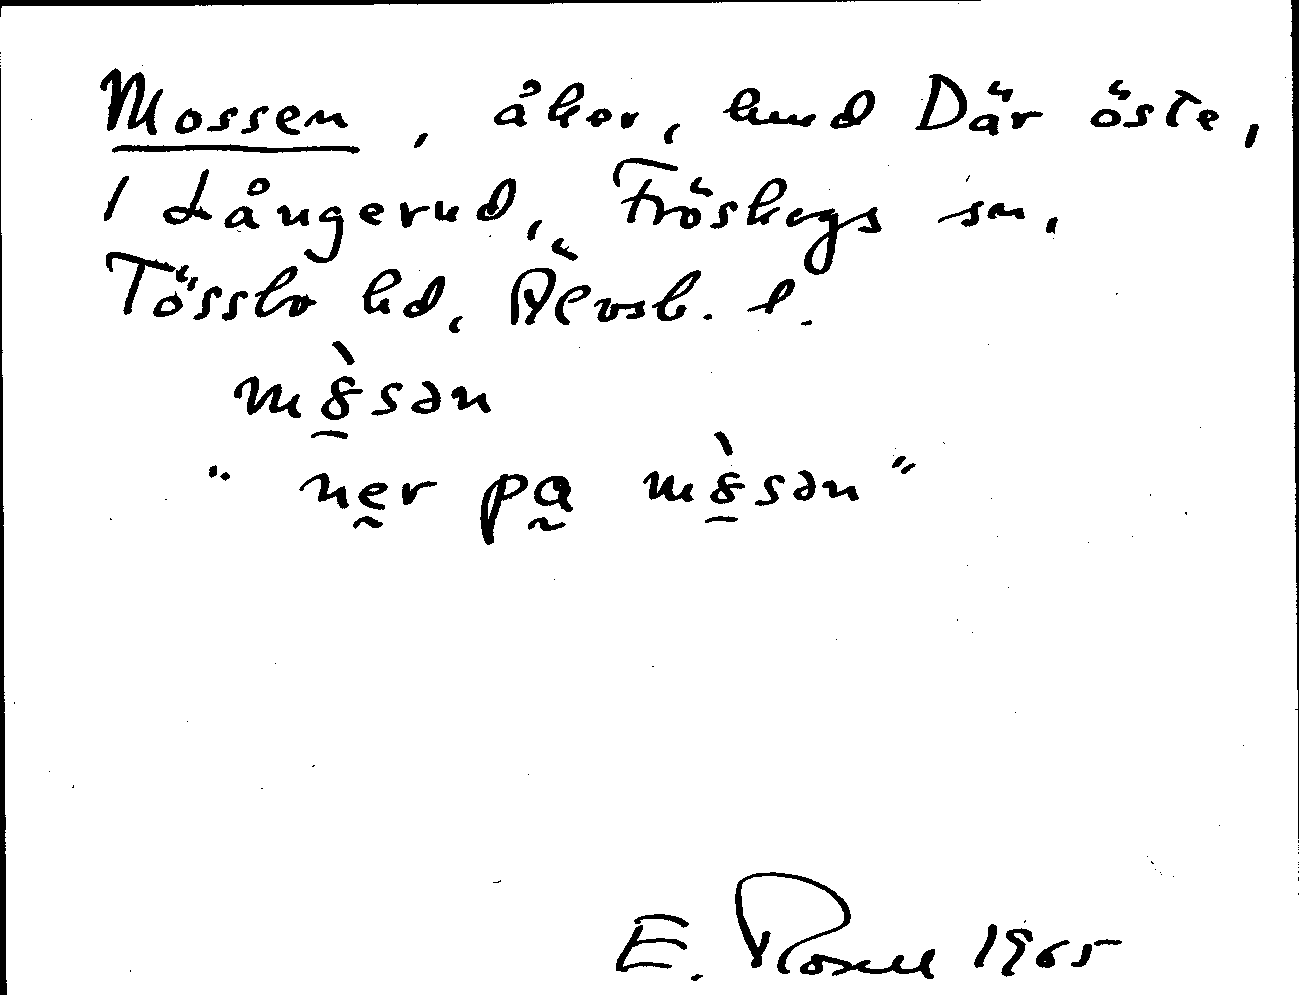 Mossen, åker, hmd Där öste,
1 Långerud, Fröskogs sn,
Tössbo hd, Älvsb. l.
mȣ̀sən
"ner pa mȣ̀sən"
E. Rosell 1965